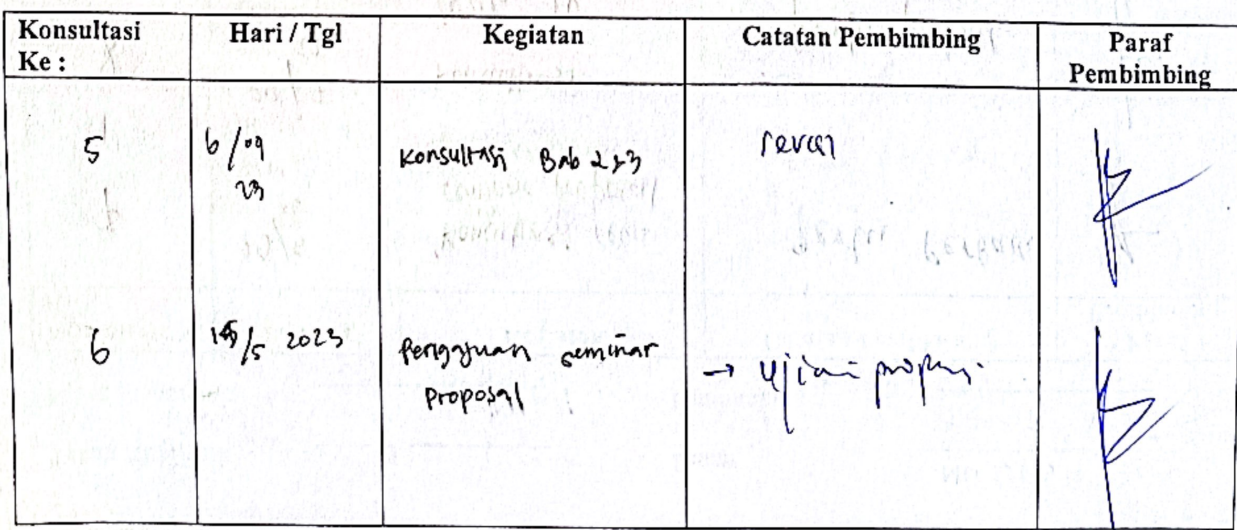 Konsultasi Ke :
Hari / Tgl
Kegiatan
Catatan Pembimbing
Paraf Pembimbing
5
6/09
23
Konsultasi Bab 2 & 3
revisi
6
/5 2023
Pengajuan seminar
proposal
→ Ujian